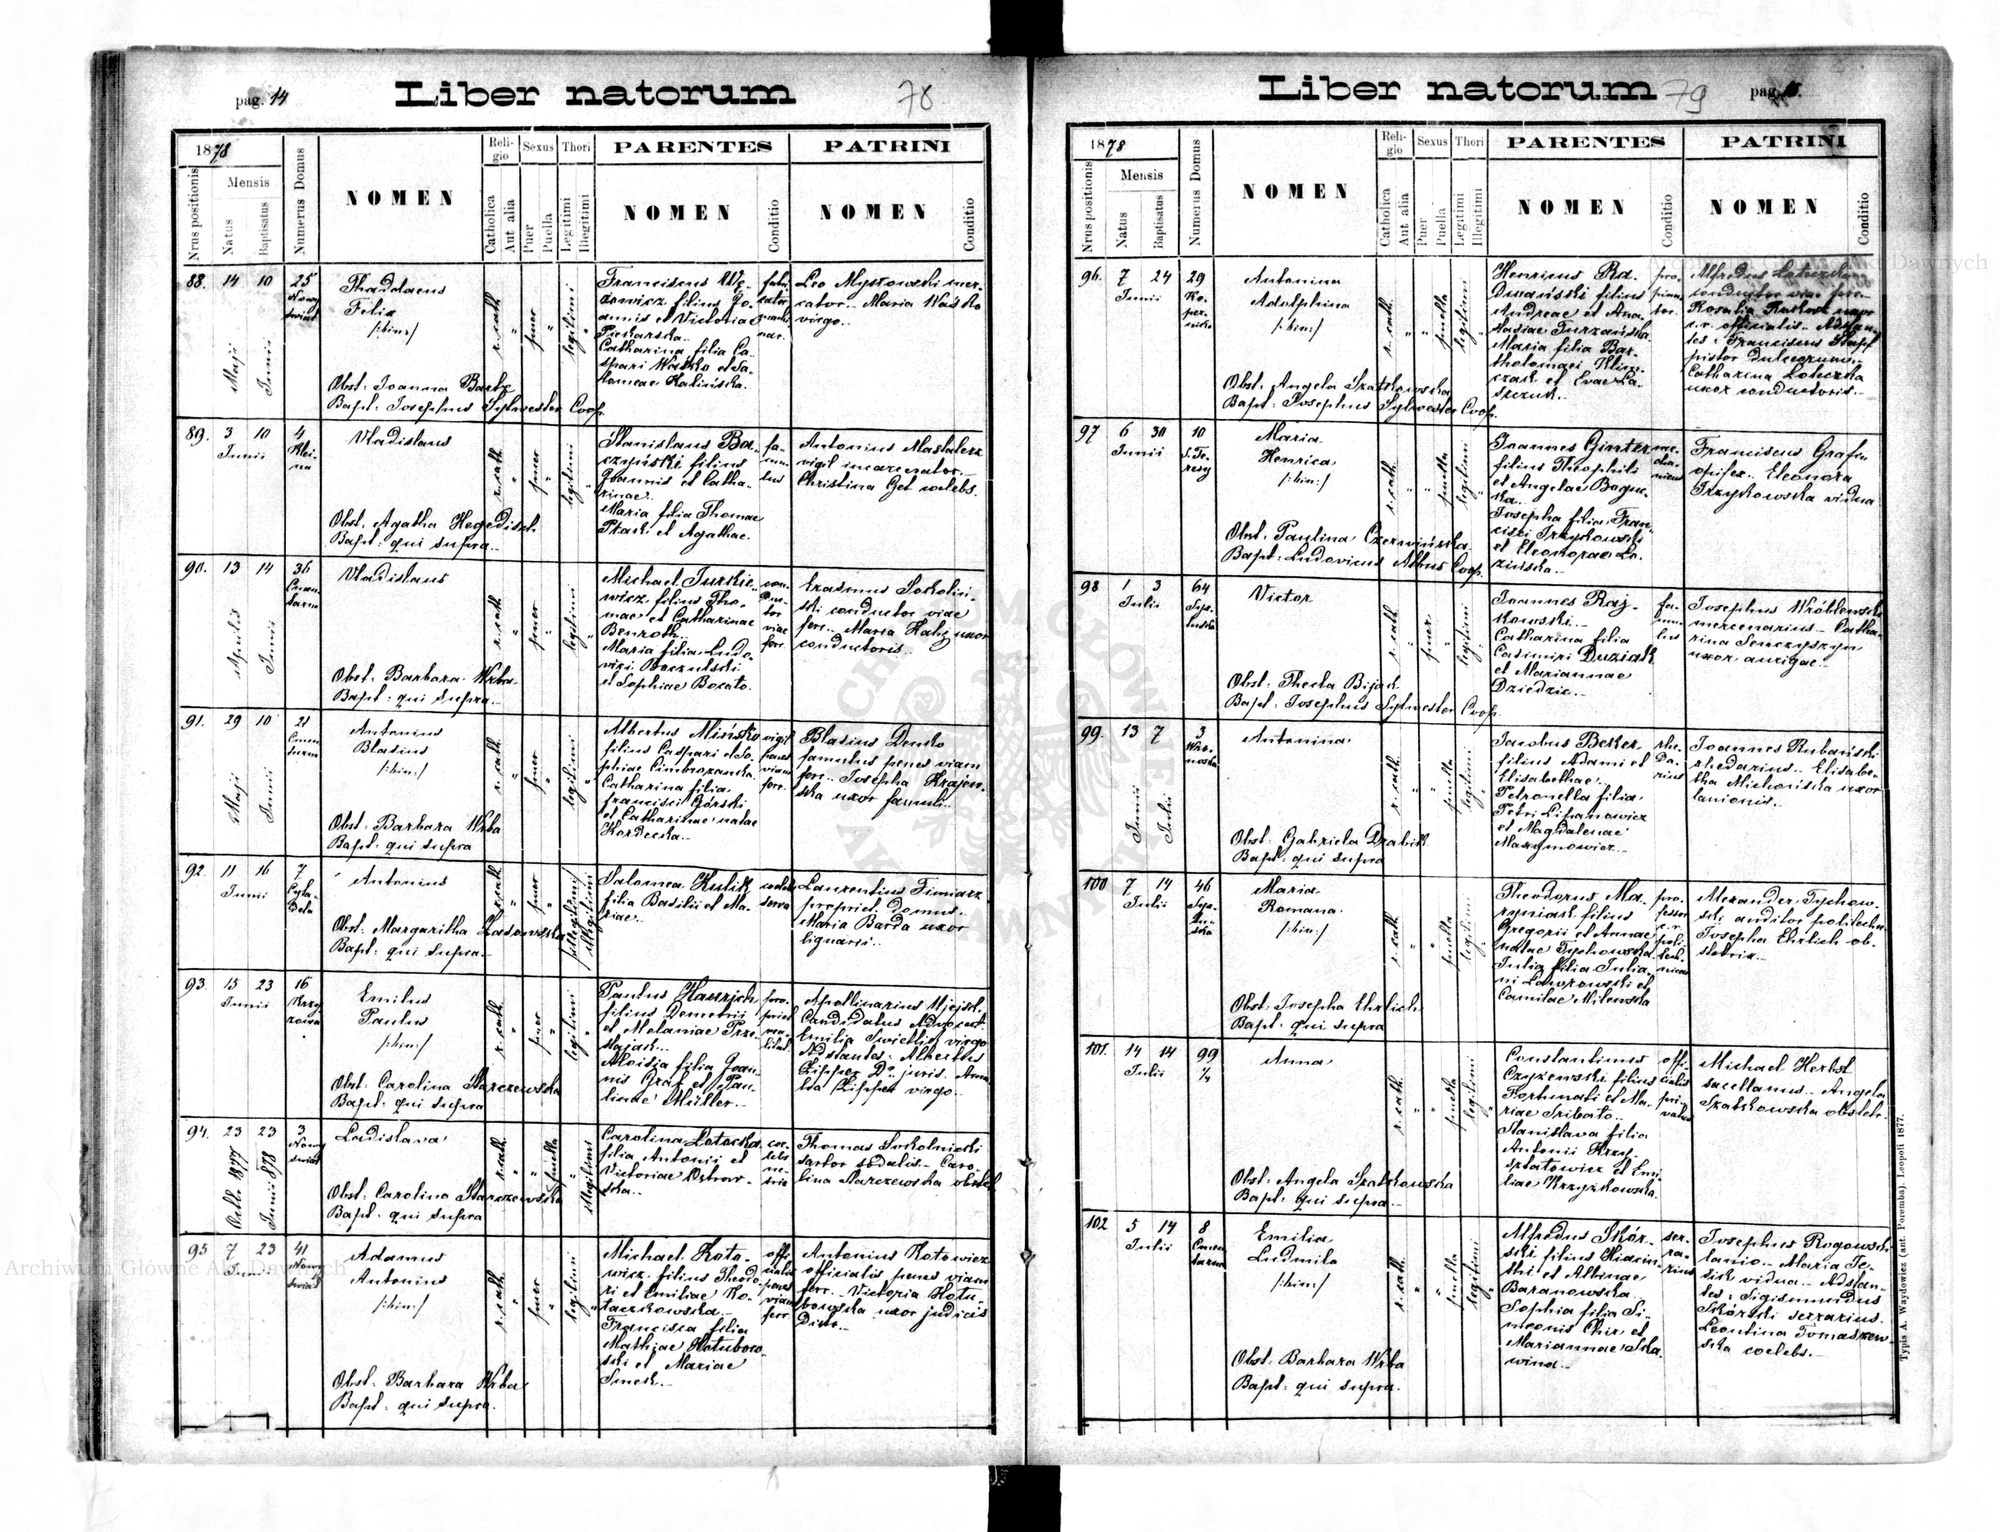 pag. 14
Liber natorum
78
1878
Nrus positionis
Mensis
Natus
Baptisatus
Numerus Domus
NOMEN
Reli-
gio
Catholica
Aut alia
Sexus
Puer
Puella
Thori
Legitimi
Illegitimi
PARENTES
NOMEN
Conditio
PATRINI
NOMEN
Conditio
88. 14 10 25
Maji Junii
Nowy
świat
Thaddaeus
Felix
/:bin:/
Obst: Joanna Bartz
Bapt: Josephus Sylwester Coop.
r. cath. " puer " legitimi "
annis et Victoria
Piekarska
Catharina filia Ca-
spari Wasko et Sa-
lomeae Kalińska.
Leo Mysłowski mer-
cator. Maria Waśko
virgo.
89. 3 10 4
Junii
Klei-
na
Vladislaus
Obst: Agatha Hegedisch
Bapt: qui supra.
r. cath. " puer " legitimi "
Stanislaus Ba-
czyński filius
Joannis et Catha-
rinae
Maria filia Thomae
Ptack et Agathae.
fa-
mu-
lus
Antonius Mastalerz
vigil incarcerator.
Christina Get coelebs.
90. 13 14 36
Aprilis Junii
Vladislaus
Obst: Barbara Wrba
Bapt: qui supra.
r. cath. " puer " legitimi "
Michael Turkie-
wicz filius Tho-
mae et Catharinae
Benroth.
Maria filia Ludo-
vici
et Sophiae Bocato.
con-
duc-
tor
viae
ferr.
Erasmus Sokolni-
ski conductor viae
ferr. Maria Kahl uxor
conductoris.
91. 29 10 21
Maji Junii
Antonius
Blasius
/:bin:/
Obst: Barbara Wrba
Bapt: qui supra
r. cath. " puer " legitimi "
Albertus Mińsko
filius Caspari et So-
phiae
Catharina filia
francisci Górski
et Catharinae natae
Kordecka.
vigil
penes
viam
ferr.
Blasius Denko
famulus penes viam
ferr. Josepha Krajew-
ska uxor famuli.
92. 11 16 7
Junii
Cyta-
dela
Antonius
Obst: Margaritha Zasowska
Bapt: qui supra.
r. cath. " puer " illegitimi
Salomea Kulik
filia Basilii et Ma-
riae.
Laurentius Timiarz
propriet. domus.
Maria Barda uxor
lignarii.
93. 15 23 16
Junii
Krzy-
żowa
Emilus
Paulus
/:bin:/
Obst: Carolina Starczewska
Bapt: qui supra
r. cath. " puer " legitimi "
filius Demetrii
et Melaniae Prze-
stajack.
Aloisia filia Joan-
nis Graf et Pau-
linae Müller.
Apollinarius Ujejski
Candidatus Advocat.
Emilia Swietlik virgo
Adstantes: Albertus
Zipper Dr. juris. Ama-
lia Zipper virgo.
94. 23 23 3
Octb. 1877 Junii 1878
Nowy
świat
Ladislava
Obst: Carolina Starczewska
Bapt: qui supra
r. cath. " " puella " illegitimi
Carolina Lotocka
filia Antonii et
Victoriae Ostrow-
ska.
Thomas Sokolnicki
sartor sodalis. Caro-
lina Starczewska obstet.
95 7 23 41
Junii
Nowy
świat
Adamus
Antonius
/:bin:/
Obst: Barbara Wrba
Bapt: qui supra.
r. cath. " puer " legitimi "
Michael Koto-
wicz filius Theodo-
ri et Emiliae Ko-
taczkowska
Francisca filia
Mathiae Hotubow-
ski et Mariae
Smek.
offi-
cialis
penes
viam
ferr.
Antonius Kotowicz
officialis penes viam
ferr. Victoria Hotu-
bowska uxor judicis
Distr.
Liber natorum
79
pag. 15.
1878
Nrus positionis
Mensis
Natus
Baptisatus
Numerus Domus
NOMEN
Reli-
gio
Catholica
Aut alia
Sexus
Puer
Puella
Thori
Legitimi
Illegitimi
PARENTES
NOMEN
Conditio
PATRINI
NOMEN
Conditio
96. 7 24 29
Junii
Ko-
per-
nika
Antonina
Adolphina
/:bin:/
Obst: Angela Szatkowska
Bapt: Josephus Sylwester Coop.
r. cath. " " puella legitimi "
Henricus Ra-
dwański filius
Andreae et Ana-
stasiae Turzańska
Maria filia Bar-
tholomaei Klim-
czak et Evae La-
szczuk.
pro-
pina-
tor.
conductor viae ferr.
c.r. officialis. Adstan-
tes: Franciscus Stapf
pistor dulciorum.
Catharina Loteczka
uxor conductoris.
97 6 30 10
Junii
S. Te-
resy
Maria
Henrica
/:bin:/
Obst: Paulina Czerwińska
Bapt: Ludovicus Albus Coop.
r. cath. " " puella legitimi "
Joannes Ginter
filius Theophili
et Angelae Bogu-
ka.
Josepha filia Fran-
cisci Trzykowski
et Eleonorae Lo-
zińska.
me-
cha-
nicus
Franciscus Graf
opifex. Eleonora
Trzykowska vidua
98 1 3 64
Julii
Victor
Obst: Thecla Bijak
Bapt: Josephus Sylwester Coop.
r. cath. " puer " legitimi "
Joannes Raj-
kowski.
Catharina filia
Casimiri Duziak
et Mariannae
Dziedzic.
fa-
mu-
lus
Josephus Wróblewski
mercenarius. Catha-
rina Senczyszyn
uxor aurigae.
99. 13 7 3
Junii Julii
Antonina
Obst: Gabriela Drabik
Bapt: qui supra
r. cath. " " puella legitimi "
Jacobus Beker
filius Adami et
Elisabethae
Petronella filia
Petri Lipanowicz
et Magdalenae
Maxymowicz.
rhe-
da-
rius
Joannes Rubański
rhedarius. Elisabe-
tha Michońska uxor
lanionis.
100 7 14 46
Julii
Maria
Romana
/:bin:/
Obst: Josepha Ehrlich
Bapt: qui supra
r. cath. " " puella legitimi "
Theodorus Ma-
ryniak filius
Gregorii et Annae
natae Tychowska.
Julia filia Julia-
ni Laworowski et
Camilae Milewska
pro-
fessor
c. r.
poli-
tech-
nicus
Alexander Tychow-
ski auditor politechn.
Josepha Ehrlich ob-
stetrix.
101. 14 14 99
Julii ¼
Anna
Obst: Angela Szatkowska
Bapt: qui supra.
r. cath. " " puella legitimi "
Constantinus
Czyżewski filius
Fortunati et Ma-
riae Tribato.
Stanislava filia
Antonii Krzy-
sztafowicz et Emi-
liae Krzyżkowska.
offi-
cialis
pri-
vatus
Michael Herbst
sacellanus. Angela
Szatkowska obstetr.
102 5 14 8
Julii
Emilia
Ludmila
/:bin:/
Obst: Barbara Wrba
Bapt: qui supra.
r. cath. " " puella legitimi "
Alfredus Skór-
ski filius Hiacin-
thi et Albinae
Baranowska.
Sophia filia Si-
meonis Chir et
Mariannae Ska-
wina.
ser-
ra-
rius
Josephus Rogowski
lanio. Maria Te-
sik vidua. Adstan-
tes: Sigismundus
Skórski serrarius.
Leontina Tomaszew-
ska coelebs.
Typis A. Waydowicz (ant. Poremba). Leopoli 1877.
Archiwum Główne Akt Dawnych
Archiwum Główne Akt Dawnych
ARCHIWUM GŁÓWNE AKT DAWNYCH